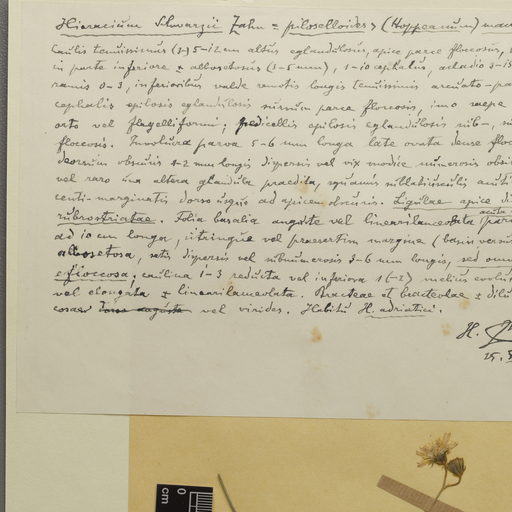 Hieracium Schwarzii Zahn = piloselloides > (Hoppeanum) mac
Caulis tenuissimus (3-) 5-12 cm altus eglandulosus, apice parce floccosus,
in parte inferiore ± albosetosus (3-5 mm), 1-10 cephalus, acladio 3-15
ramis 0-3, inferioribus valde remotis longis tenuissimis arcuato-pa
cephalis epilosis eglandulosis parce floccosis, imo saepe
orto vel flagelliformi; pedicellis epilosis eglandulosis sub-,
floccosis. Involucra parva 5-6 mm longa late ovata dense floc
deorsum obscuris 1-2 mm longis dispersis vel vix modice numerosis obsi
vel raro una altera glandula praedita, squamis sublatiusculis acuti
centi-marginatis dorso usque ad apicem obscuris. Ligulae apice di
rubrostriatae. Folia basalia anguste vel linearilanceolata acuta (par
ad 10 cm longa, utrinque vel praesertim margine (basin versus
albosetosa, setis dispersis vel subnumerosis 3-6 mm longis, sed omn
efloccosa; caulina 1-3 reducta vel inferiora 1(-2) melius evolut
vel elongata ± linearilanceolata. Bracteae et bracteolae ± dilu
cosae vel virides. Habitu H. adriatici.
H.
25.
0
cm